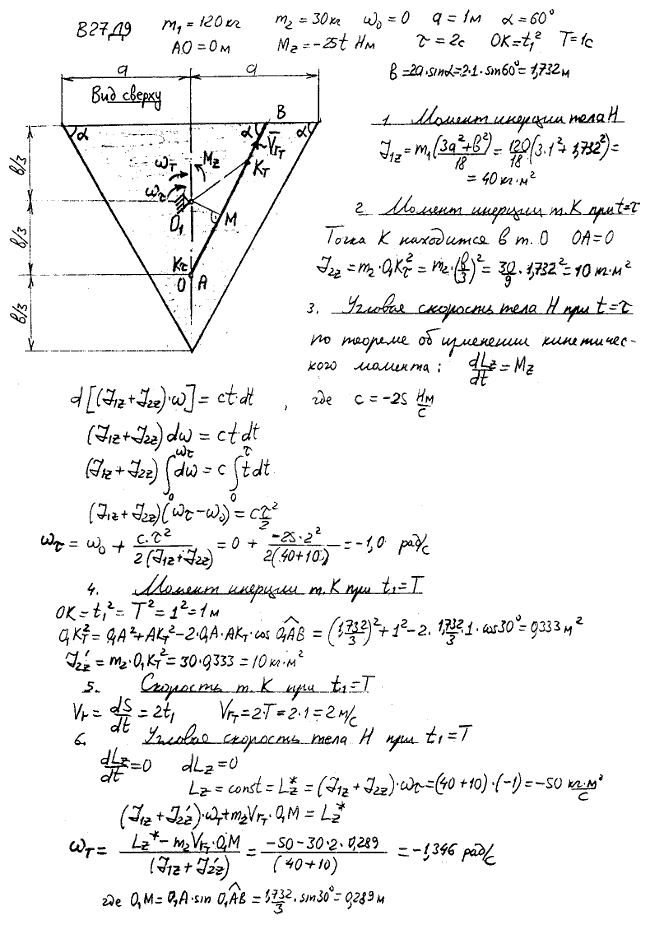 В27Д9 m₁=120кг m₂=30кг ω₀=0 a=1м α=60°
AO=0м M_z=-25t Нм τ=2c OK=t₁² T=1c
a a
b=2a·sinα=2·1·sin60°=1,732м
Вид сверху
B
α α α
V̄_rT
K_T
ω_T M_z
ω_τ
O₁ M
K_τ
O A
b/3
b/3
b/3
1. Момент инерции тела H
J_1z=m₁(3a²+b²/18)=120/18(3·1²+1,732²)=
=40 кг·м²
2. Момент инерции т.K при t=τ
Точка K находится в т.O OA=0
J_2z=m₂·O₁K_τ²=m₂·(b/3)²=30/9·1,732²=10 кг·м²
3. Угловая скорость тела H при t=τ
по теореме об изменении кинетичес-
кого момента: dL_z/dt=M_z
d[(J_1z+J_2z)·ω]=ct·dt , где c=-25 Нм/c
(J_1z+J_2z)dω=ct·dt
(J_1z+J_2z)∫₀^ω_τ dω=c∫₀^τ tdt
(J_1z+J_2z)(ω_τ-ω₀)=cτ²/2
ω_τ=ω₀+c·τ²/2(J_1z+J_2z)=0+-25·2²/2(40+10)=-1,0 рад/с
4. Момент инерции т.K при t₁=T
OK=t₁²=T²=1²=1м
O₁K_T²=O₁A²+AK_T²-2·O₁A·AK_T·cos O₁AB=(1,732/3)²+1²-2·1,732/3·1·cos30°=0,333м²
J_2z'=m₂·O₁K_T²=30·0,333=10кг·м²
5. Скорость т.K при t₁=T
V_r=dS/dt=2t₁ V_rT=2·T=2·1=2м/с
6. Угловая скорость тела H при t₁=T
dL_z/dt=0 dL_z=0
L_z=const=L_z*=(J_1z+J_2z)·ω_τ=(40+10)·(-1)=-50 кг·м²/с
(J_1z+J_2z')·ω_T+m₂V_rT·O₁M=L_z*
ω_T=L_z*-m₂V_rT·O₁M/(J_1z+J_2z')=-50-30·2·0,289/(40+10)=-1,346 рад/с
где O₁M=O₁A·sin O₁AB=1,732/3·sin30°=0,289м